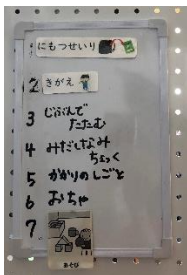 1 にもつせいり
2 きがえ
3 じぶんで
たたむ
4 みだしなみ
ちぇっく
5 かかりのしごと
6 おちゃ
7
あそび